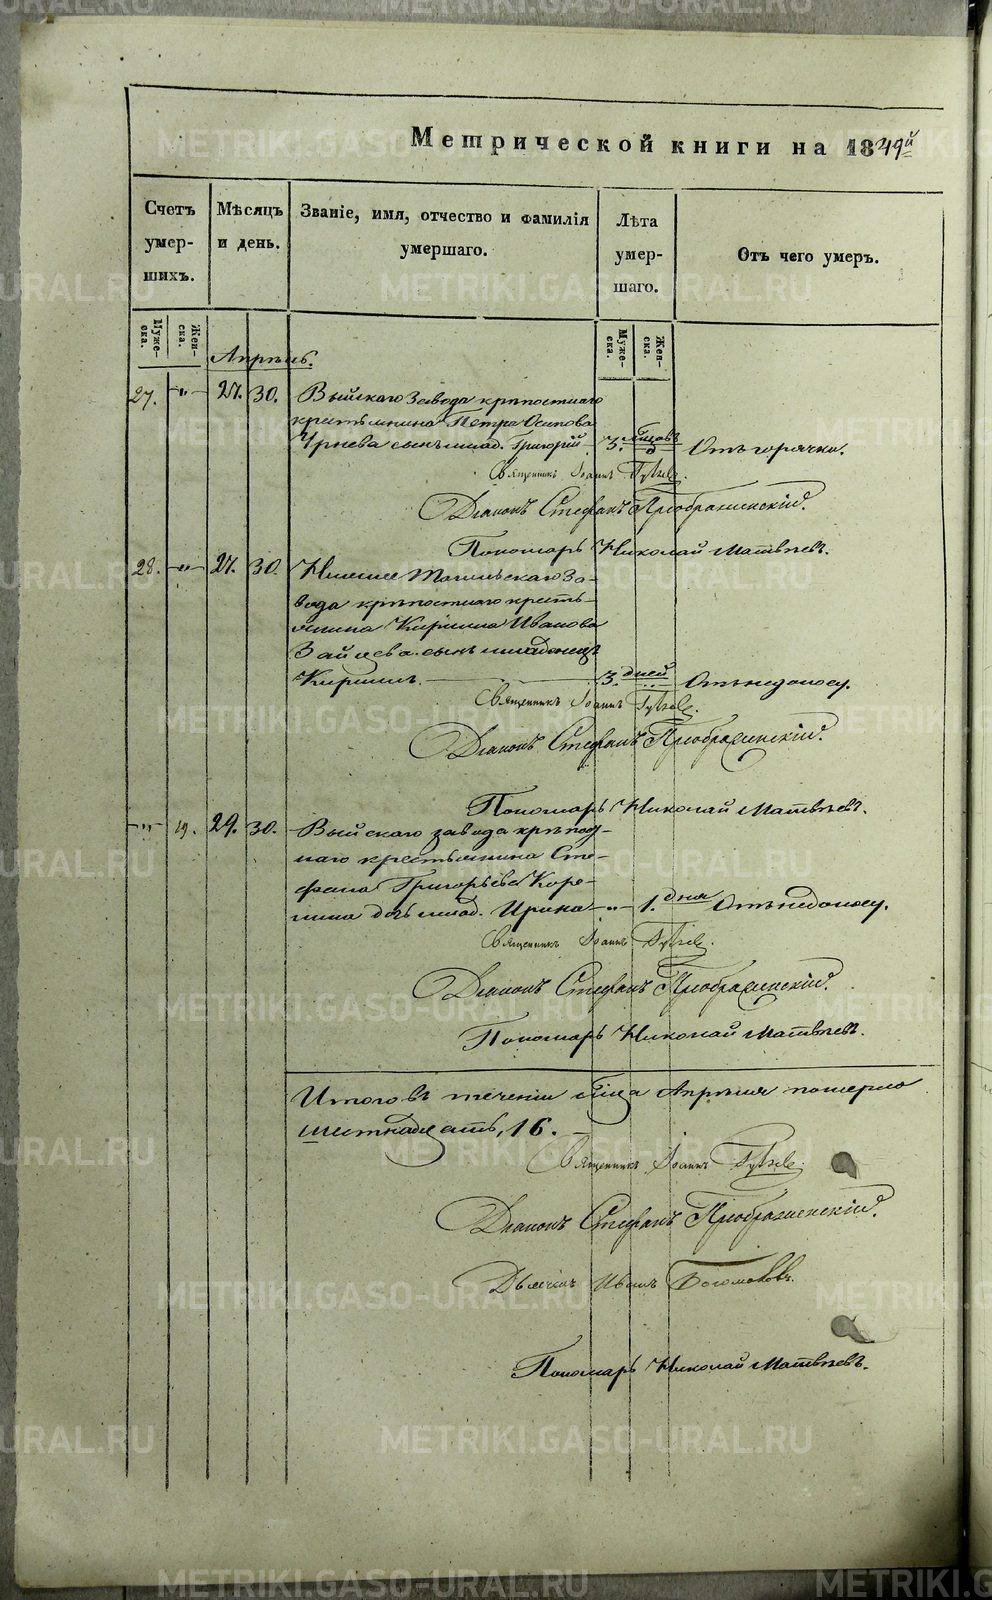 Метрической книги на 1849й
Счетъ умер-шихъ.
Мѣсяцъ и день.
Званіе, имя, отчество и фамилія умершаго.
Лѣта умер-шаго.
Отъ чего умеръ.
Муже-ска.
Жен-ска.
Муже-ска.
Жен-ска.
Апрѣль.
27. " 27. 30. Выйскаго завода крѣпостнаго
крестьянина Петра Осипова
сынъ млад. Григорій 3. мѣсяцовъ Отъ горячки.
Священникъ Іоаннъ
Діаконъ Стефанъ Преображенскій.
Пономарь Николай Матвѣевъ.
28. " 27. 30. Нижне Тагильскаго За-
вода крѣпостнаго кресть-
янина Кирилла Иванова
Зайцева сынъ младенецъ
Кириллъ. 3. дней Отъ недоносу.
Священникъ Іоаннъ
Діаконъ Стефанъ Преображенскій.
Пономарь Николай Матвѣевъ.
" 19. 29. 30. Выйскаго завода крѣпост-
наго крестьянина Сте-
фана Григорьева Коре-
нина дочь млад. Ирина " 1. дня Отъ недоносу.
Священникъ Іоаннъ
Діаконъ Стефанъ Преображенскій.
Пономарь Николай Матвѣевъ.
Итого въ теченіи мѣсяца Апрѣля померло
шестнадцать, 16.
Священникъ Іоаннъ
Діаконъ Стефанъ Преображенскій.
Дьячекъ Иванъ Богомоловъ.
Пономарь Николай Матвѣевъ.
METRIKI.GASO-URAL.RU